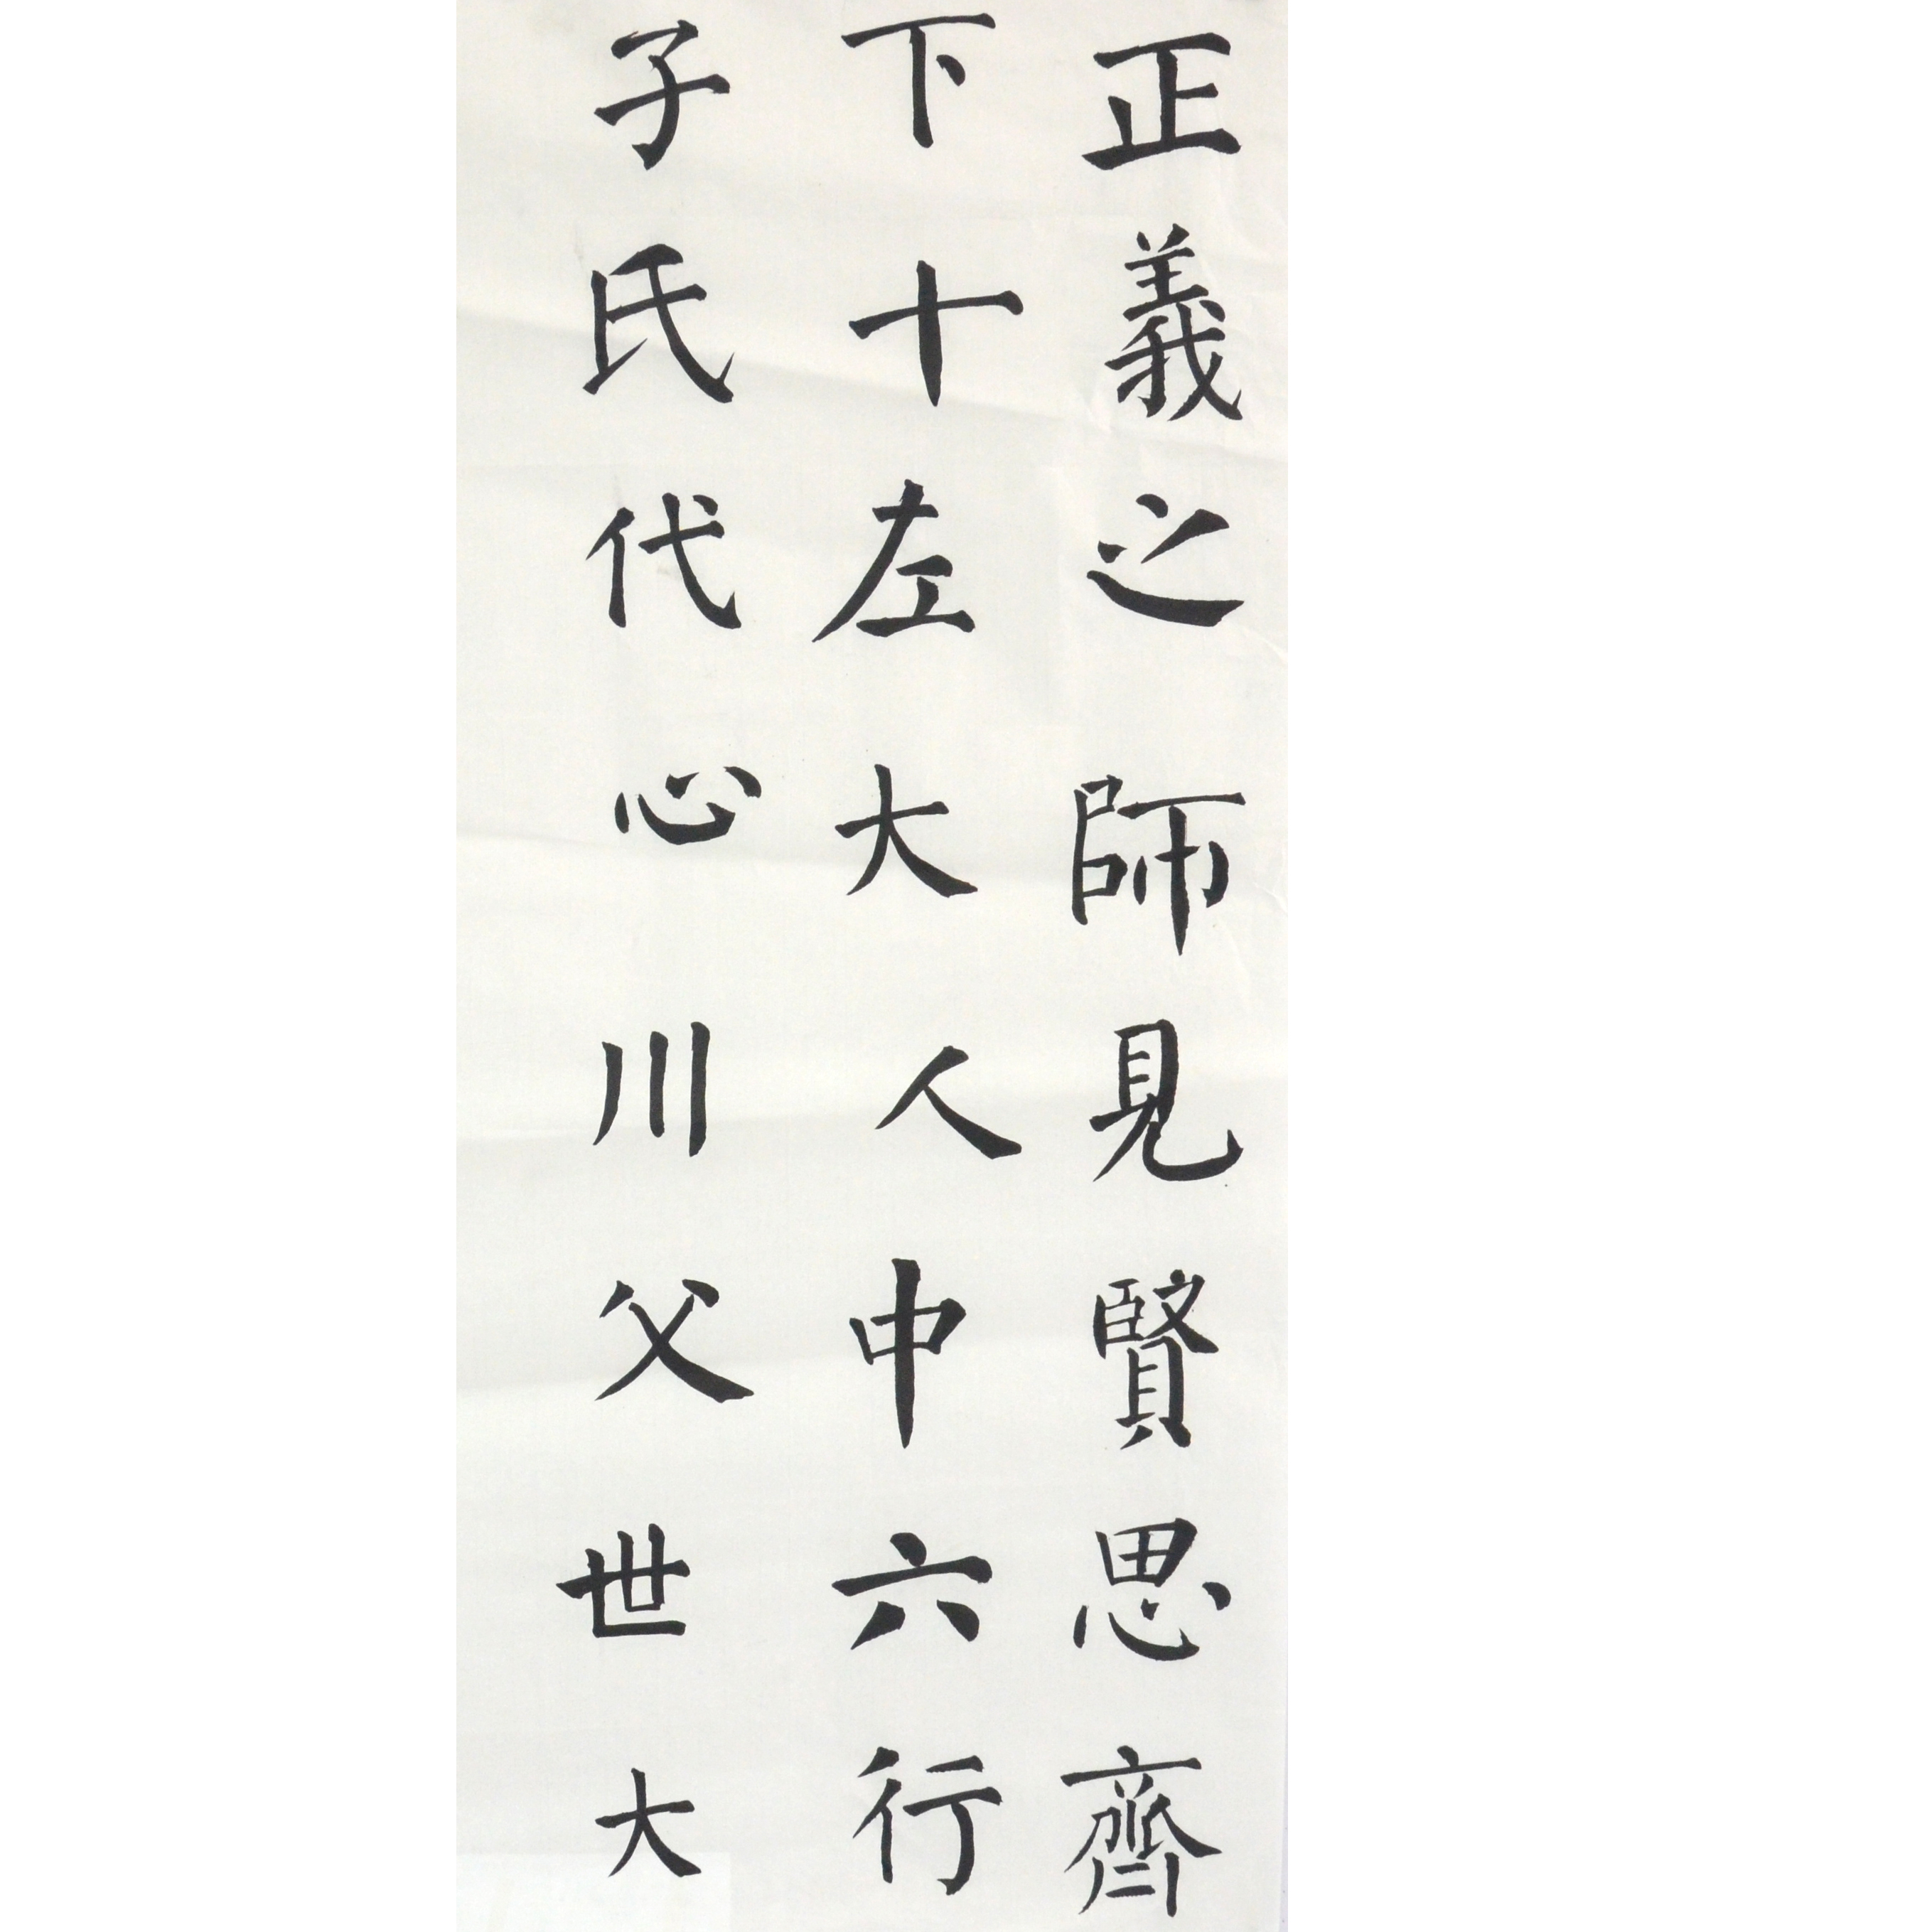 正義之師見賢思齊
下十左大人中六行
子氏代心川父世大